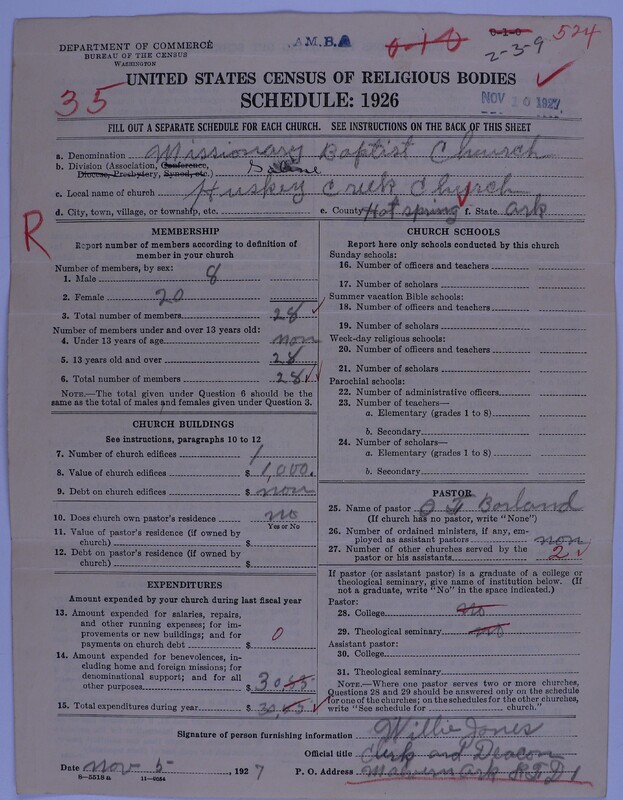 DEPARTMENT OF COMMERCE
BUREAU OF THE CENSUS
WASHINGTON
A.M.B.A
0-1-0
0-1-0
2-3-9
524
35
UNITED STATES CENSUS OF RELIGIOUS BODIES
SCHEDULE: 1926
NOV 10 1927
FILL OUT A SEPARATE SCHEDULE FOR EACH CHURCH. SEE INSTRUCTIONS ON THE BACK OF THIS SHEET
a. Denomination Missionary Baptist Church
b. Division (Association, Conference, Diocese, Presbytery, Synod, etc.) Saline
c. Local name of church Huskey Creek Church
d. City, town, village, or township, etc. e. County Hot spring f. State Ark
R
MEMBERSHIP
Report number of members according to definition of
member in your church
Number of members, by sex:
1. Male 8
2. Female 20
3. Total number of members 28
Number of members under and over 13 years old:
4. Under 13 years of age non
5. 13 years old and over 28
6. Total number of members 28
NOTE.—The total given under Question 6 should be
same as the total of males and females given under Question 3.
CHURCH BUILDINGS
See instructions, paragraphs 10 to 12
7. Number of church edifices 1
8. Value of church edifices $ 1,000.
9. Debt on church edifices $ non
10. Does church own pastor's residence no
Yes or No
11. Value of pastor's residence (if owned by
church) $
12. Debt on pastor's residence (if owned by
church) $
EXPENDITURES
Amount expended by your church during last fiscal year
13. Amount expended for salaries, repairs,
and other running expenses; for im-
provements or new buildings; and for
payments on church debt $ 0
14. Amount expended for benevolences, in-
cluding home and foreign missions; for
denominational support; and for all
other purposes $ 30.65
15. Total expenditures during year $ 30.65
CHURCH SCHOOLS
Report here only schools conducted by this church
Sunday schools:
16. Number of officers and teachers
17. Number of scholars
Summer vacation Bible schools:
18. Number of officers and teachers
19. Number of scholars
Week-day religious schools:
20. Number of officers and teachers
21. Number of scholars
Parochial schools:
22. Number of administrative officers
23. Number of teachers—
a. Elementary (grades 1 to 8)
b. Secondary
24. Number of scholars—
a. Elementary (grades 1 to 8)
b. Secondary
PASTOR
25. Name of pastor O F Borland
(If church has no pastor, write "None")
26. Number of ordained ministers, if any, em-
ployed as assistant pastors non
27. Number of other churches served by the
pastor or his assistants 2
If pastor (or assistant pastor) is a graduate of a college or
theological seminary, give name of institution below. (If
not a graduate, write "No" in the space indicated.)
Pastor:
28. College No
29. Theological seminary No
Assistant pastor:
30. College
31. Theological seminary
NOTE.—Where one pastor serves two or more churches,
Questions 28 and 29 should be answered only on the schedule
for one of the churches; on the schedules for the other churches,
write "See schedule for church."
Signature of person furnishing information Willie Jones
Official title Clerk and Deacon
Date Nov 5, 1927 P. O. Address Malvern Ark RFD 1
8—5518 a 11—9654